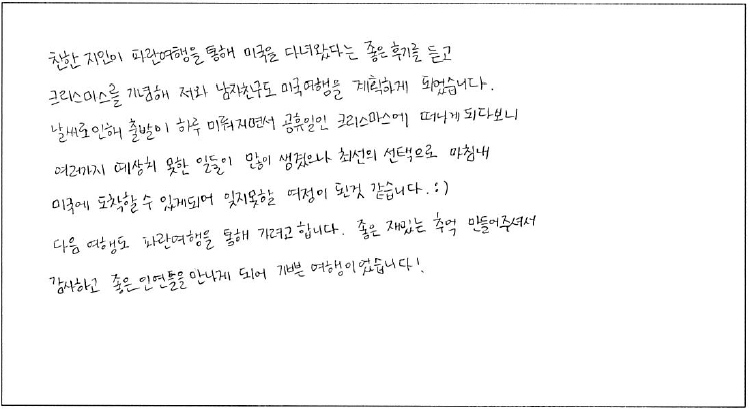 친한 지인이 파란여행을 통해 미국을 다녀왔다는 좋은 후기를 듣고
크리스마스를 기념해 저와 남자친구도 미국여행을 계획하게 되었습니다.
날씨로인해 출발이 하루 미뤄지면서 공휴일인 크리스마스에 떠나게 되다보니
여러가지 예상치 못한 일들이 많이 생겼으나 최선의 선택으로 마침내
미국에 도착할 수 있게되어 잊지못할 여정이 된것 같습니다. :)
다음 여행도 파란여행을 통해 가려고 합니다. 좋은 재밌는 추억 만들어주셔서
감사하고 좋은 인연들을 만나게 되어 기쁜 여행이었습니다!